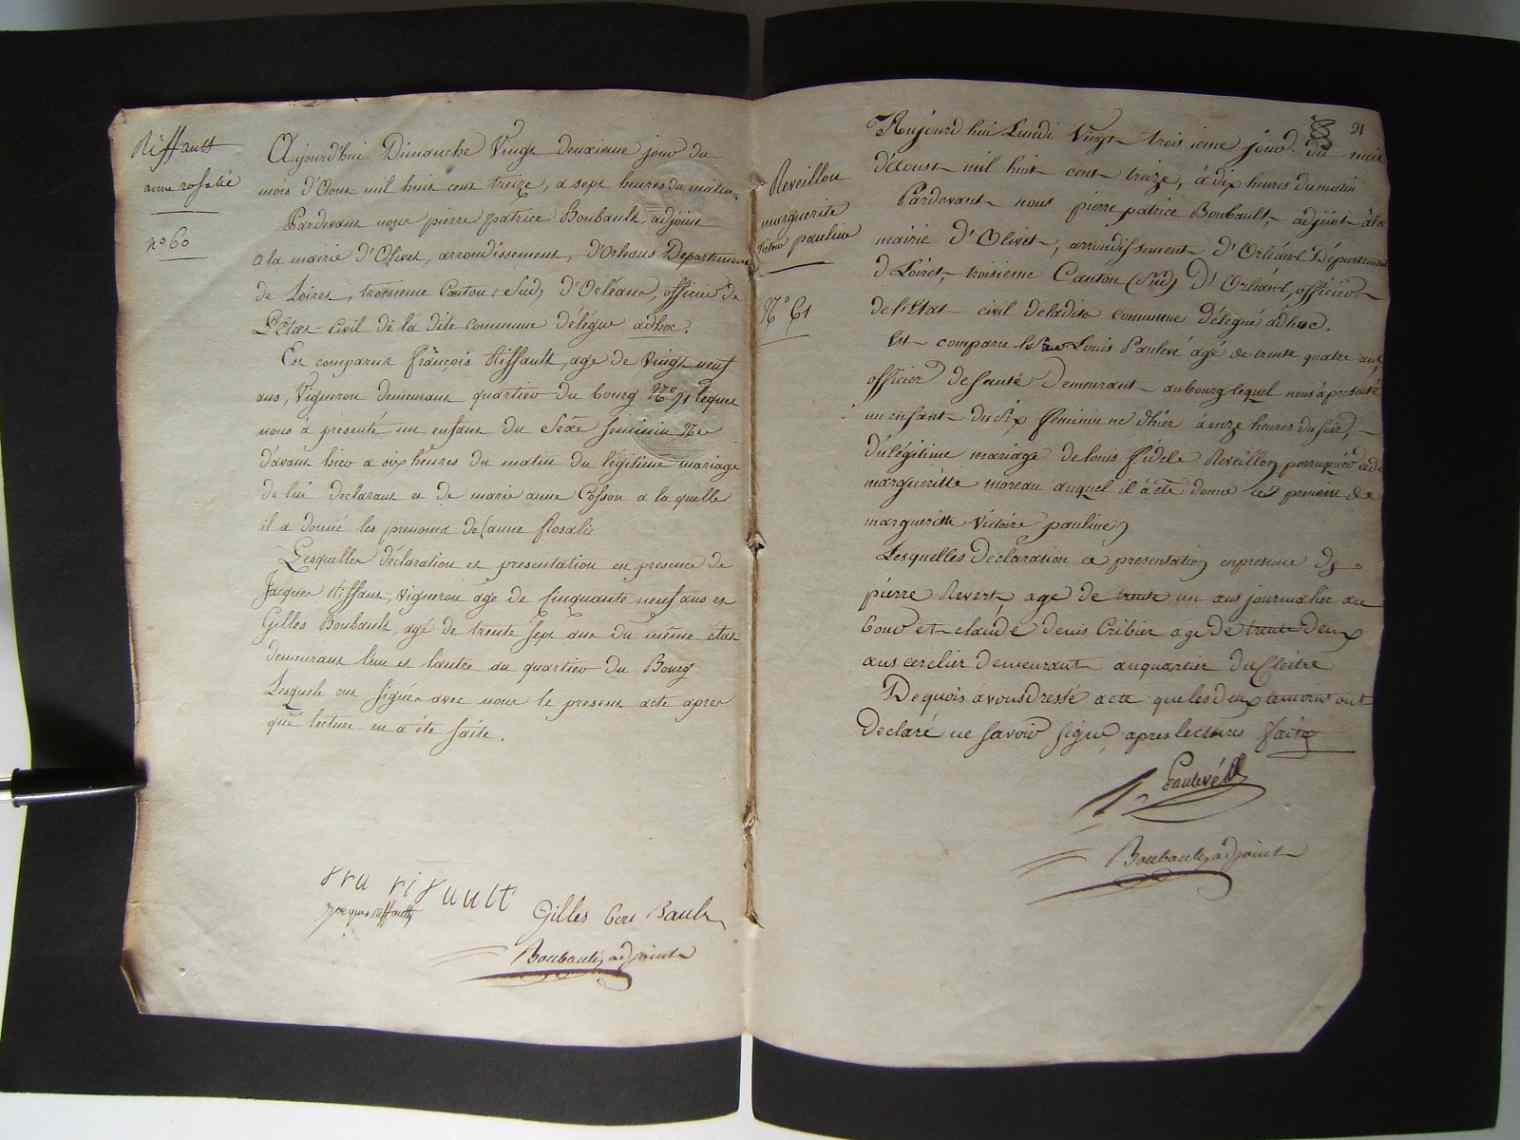 Riffault
anne rosalie
no 60
Aujourd'hui Dimanche Vingt deuxieme jour du
mois d'Aout mil huit cent treize, a sept heures du matin
Pardevant nous pierre patrice Boubault adjoint
a la mairie d'Olivet, arrondissement, d'Orléans Departement
de Loiret, troisieme Canton (Sud) d'Orléans, officier de
L'Etat-Civil de la dite commune délégué adhoc.
Est comparu françois Riffault, age de vingt neuf
ans, Vigneron demeurant quartier du bourg No 91 lequel
nous a presenté un enfant du Sexe feminin Né
d'avant hier a six heures du matin du légitime mariage
de lui declarant et de marie anne Cosson a la quelle
il a donné les prenoms de anne Rosalie
Lesquelles déclaration et presentation en presence de
Jacques Riffault, vigneron age de cinquante neuf ans et
Gilles Boubault, agé de trente sept ans du même état
demeurant l'un et l'autre au quartier du Bourg
Lesquels ont signé avec nous le present acte apres
que lecture en a été faite.
fra rifault
Jacques riffault
Gilles bou Bault
Boubault, adjoint
21
Reveillon
marguerite
victoire pauline
No 61
Aujourd'hui Lundi Vingt-trois ieme jour du mois
d'Aoust mil huit cent treize, à dix heures du matin
Pardevant nous pierre patrice Boubault, adjoint à la
mairie d'Olivet, arrondissement d'Orléans Département
d Loiret, troisieme Canton (Sud) D'Orléans, officier
de l'Etat civil de ladite commune Délégué adhoc.
Est comparu Louis Paulevé agé de trente quatre ans
officier de santé Demeurant au bourg lequel nous a presenté
un enfant du sex féminin né d'hier à onze heures du soir,
du légitime mariage de louis fidele Reveillon perruquier et de
margueritte moreau auquel il à été donné les prenoms de
margueritte Victoire pauline
Lesquelles declaration et presentation en presence de
pierre Revert age de trente un ans journalier au
bour et claude denis Cribier age de trente deux
ans cerclier demeurant au quartier du Cloitre
De quoi avons dressé acte que les deux temoins ont
Declaré ne savoir signé, apres lectures faite
Paulevé
Boubault, adjoint